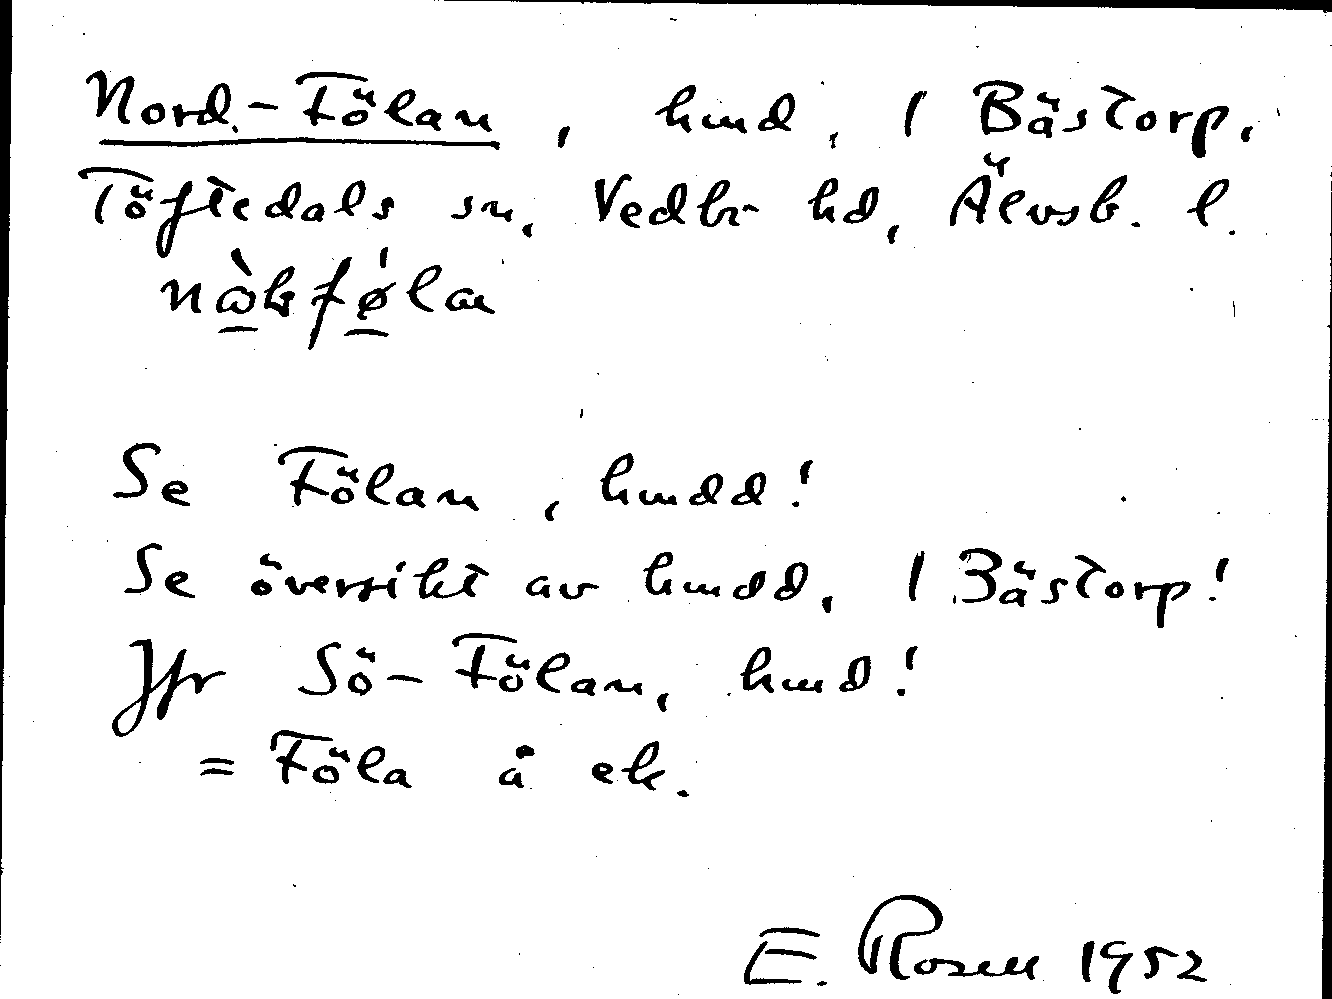 Nord-Fölan, hmd, 1 Bästorp,
Töftedals sn, Vedbo hd, Älvsb. l.
Se Fölan, hmdd!
Se översikt av hmdd, 1 Bästorp!
Jfr Sö-Fölan, hmd!
= Föla å ek.
E. Rosell 1952